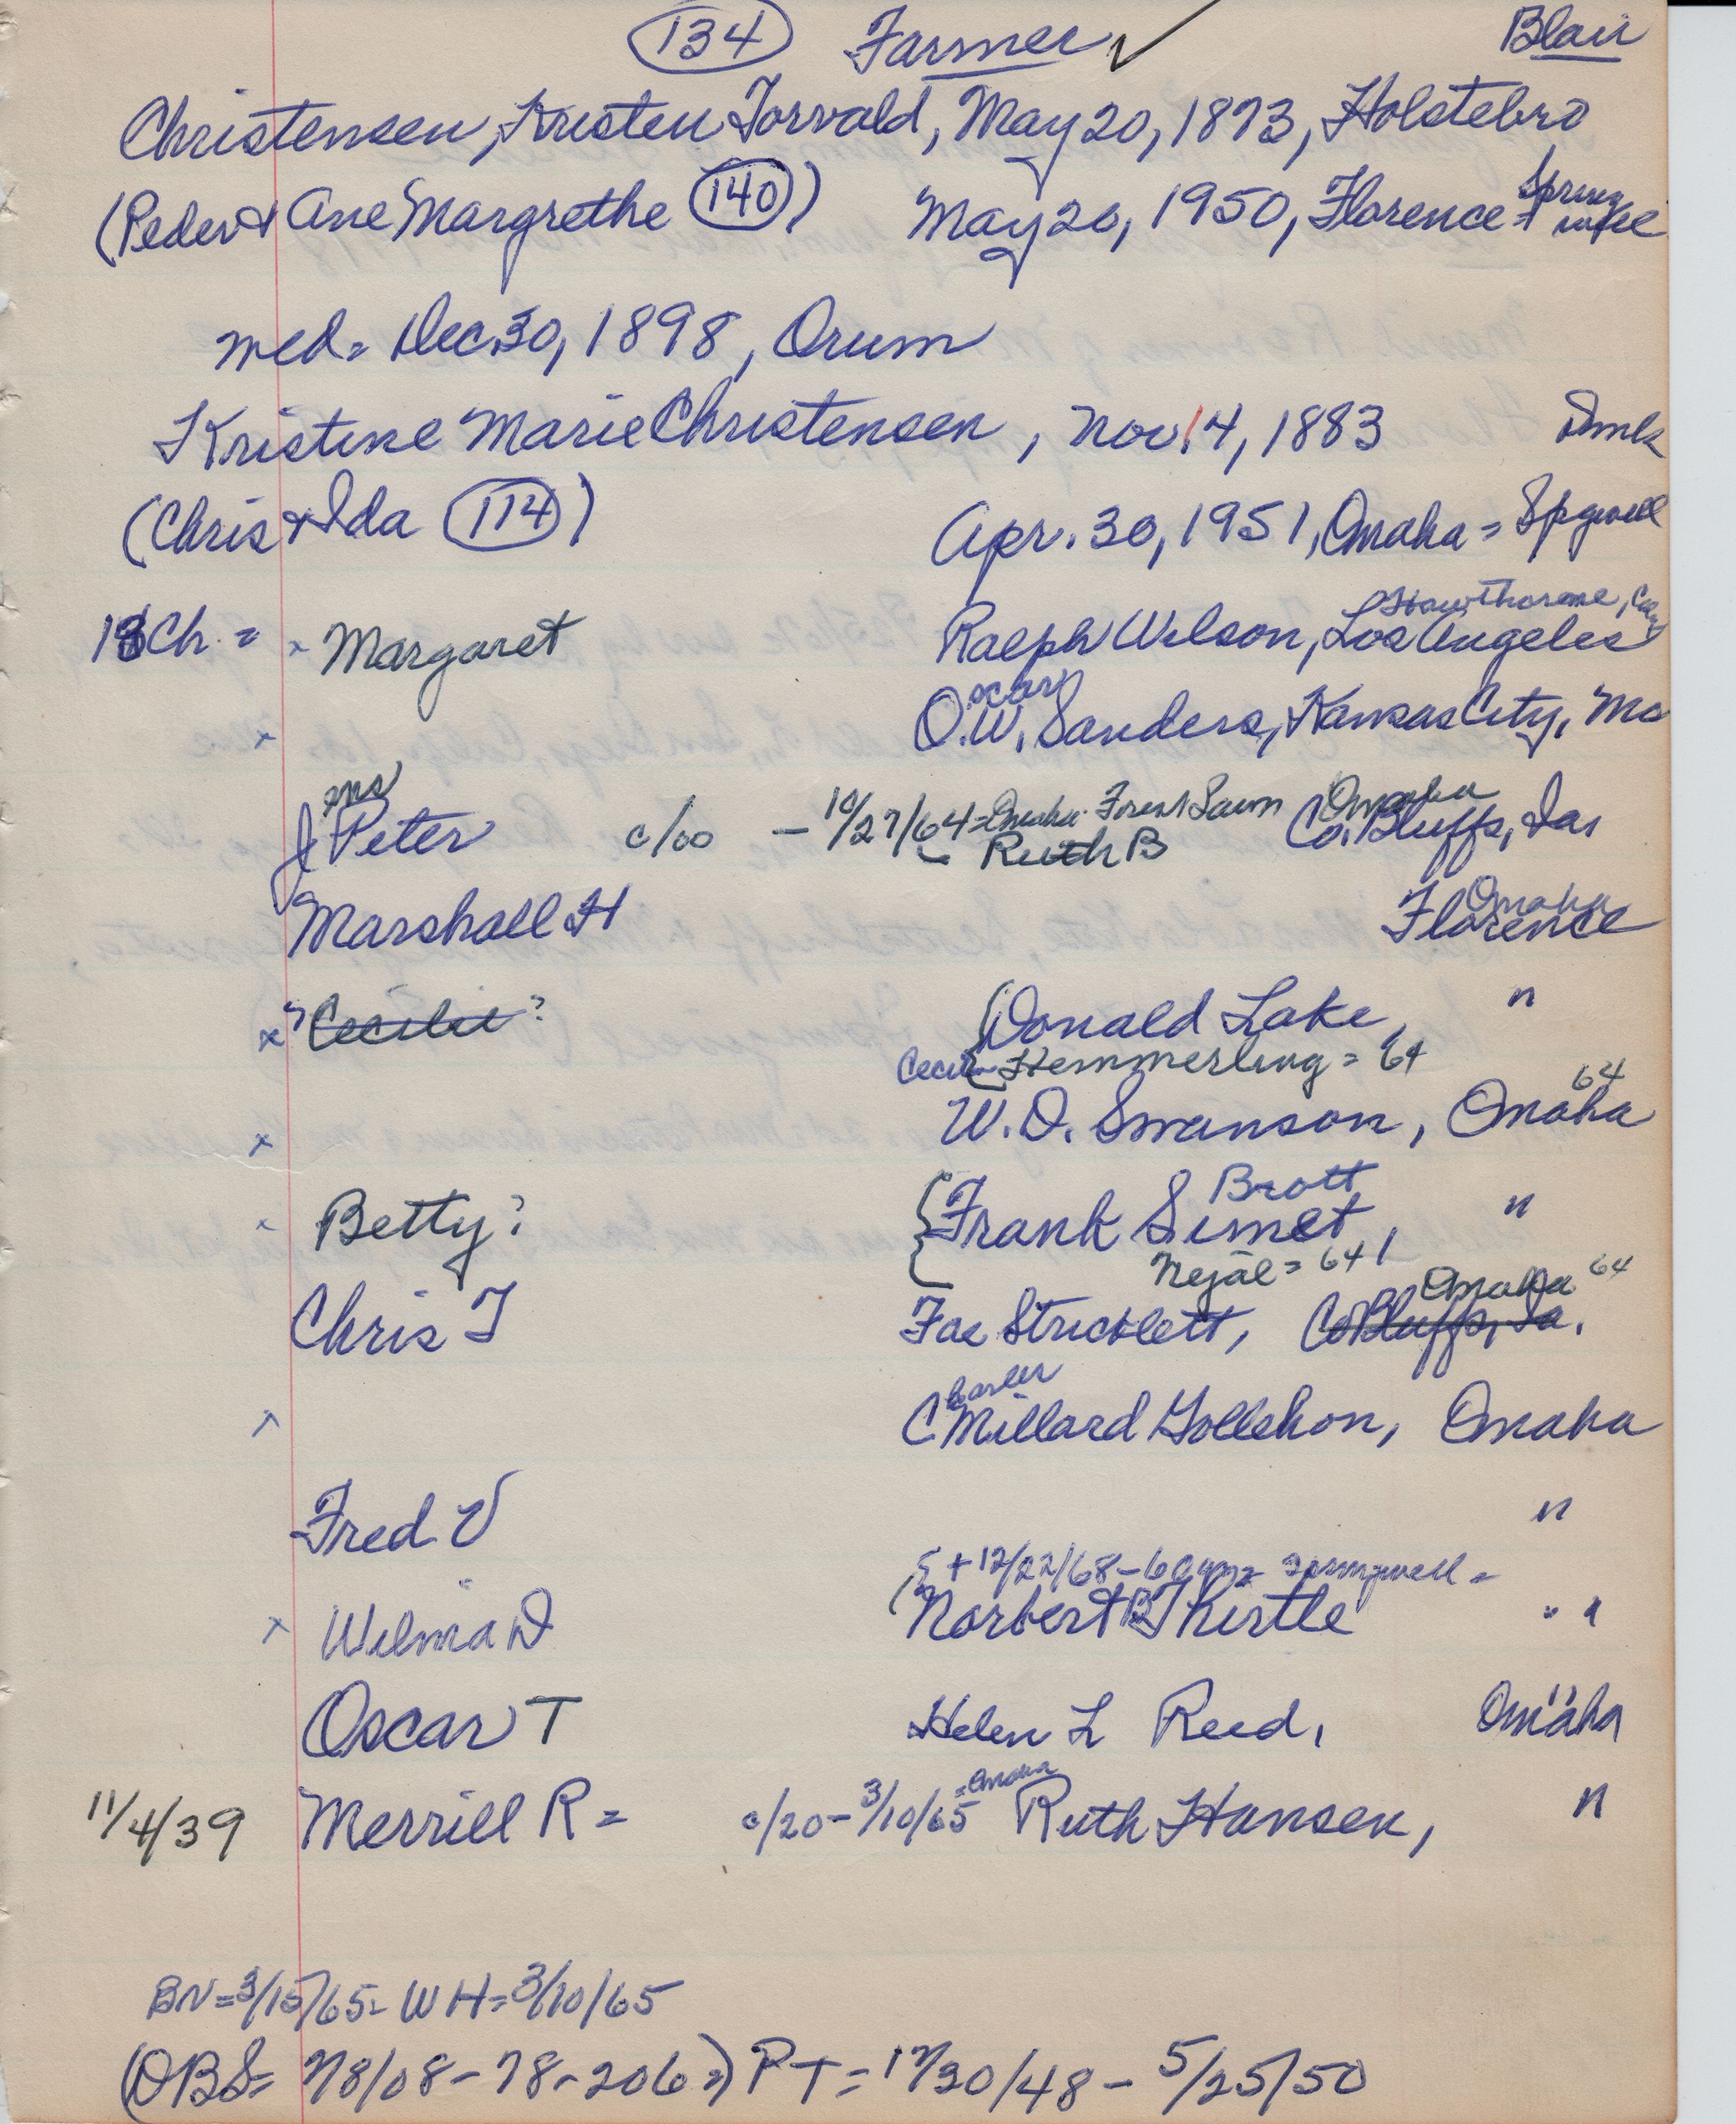 134 Farmer ✓ Blair
Christensen, Kristen Torvald, May 20, 1873, Holstebro
(Peder & Ane Margrethe 140) May 20, 1950, Florence = Spring well
med = Dec. 30, 1898, Orum
Kristine Marie Christensen, Nov. 14, 1883 Dmk
(Chris & Ida 114) Apr. 30, 1951, Omaha = Spgwell
Hawthorne,
Ch = x Margaret Ralph Wilson, Los Angeles
Oscar
x O.W. Sanders, Kansas City, Mo
ens Omaha
J Peter c/00 - 10/27/64 = Omaha Forest Lawn Co. Bluffs, Ia.
Ruth B
Omaha
Marshall H Florence
x Cecilie? {Donald Lake, "
Hemmerling = 64
64
x W.D. Swanson, Omaha
Brott
x Betty? {Frank Simet, "
Nejal = 64
Omaha 64
Chris T Fae Stricklett, Co Bluffs, Ia.
harles
x C Millard Gollehon, Omaha
Fred V "
+ 12/22/68 - 60 Springwell =
x Wilma D Norbert B Thirtle " "
Oscar T Helen L Reed, Omaha
Omaha
11/4/39 Merrill R = c/20 - 3/10/65 Ruth Hansen, "
BN = 3/15/65 = WH = 3/10/65
(OBS = 78/08 - 78 - 206 =) PT = 12/30/48 - 5/25/50